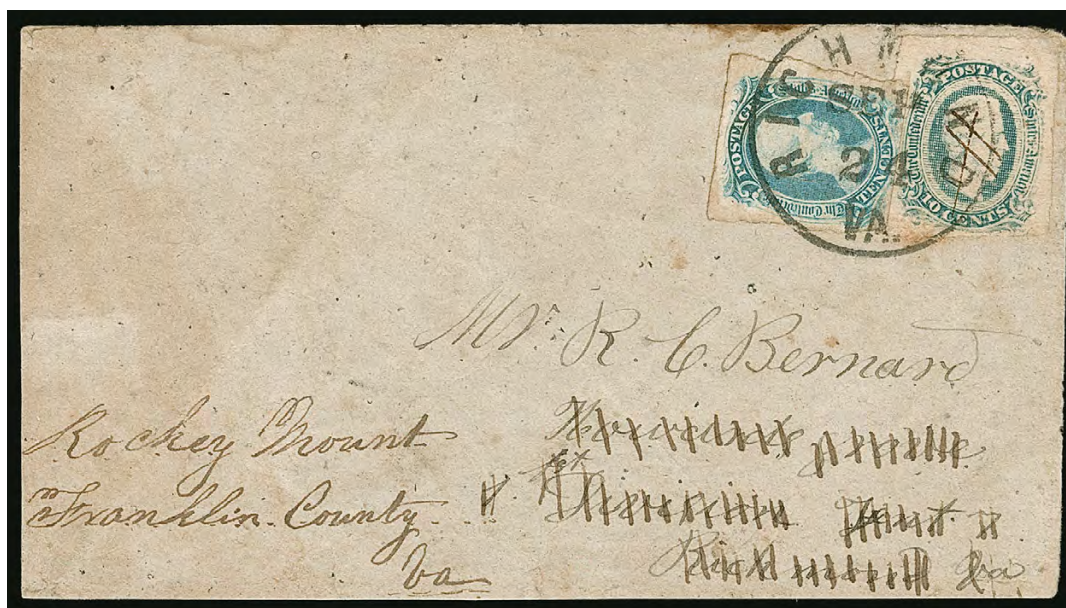 RICHMOND
SEP
24
VA.
POSTAGE
The Confederate States America
TEN CENTS
POSTAGE
The Confederate States America
TEN CENTS
Mr. R. C. Bernard
Rockey Mount
Franklin County
Va
Richmond Va